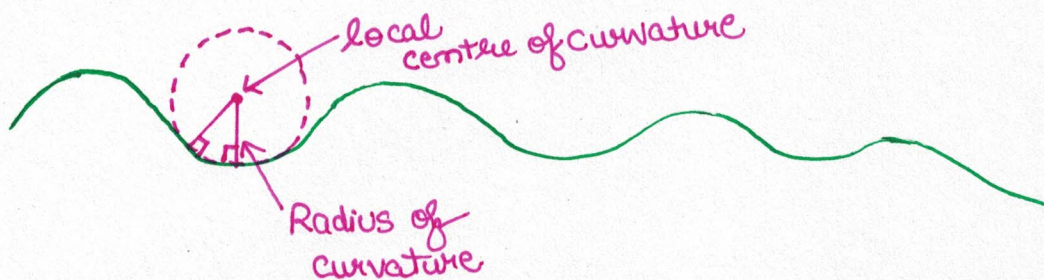 local
centre of curvature
Radius of
curvature